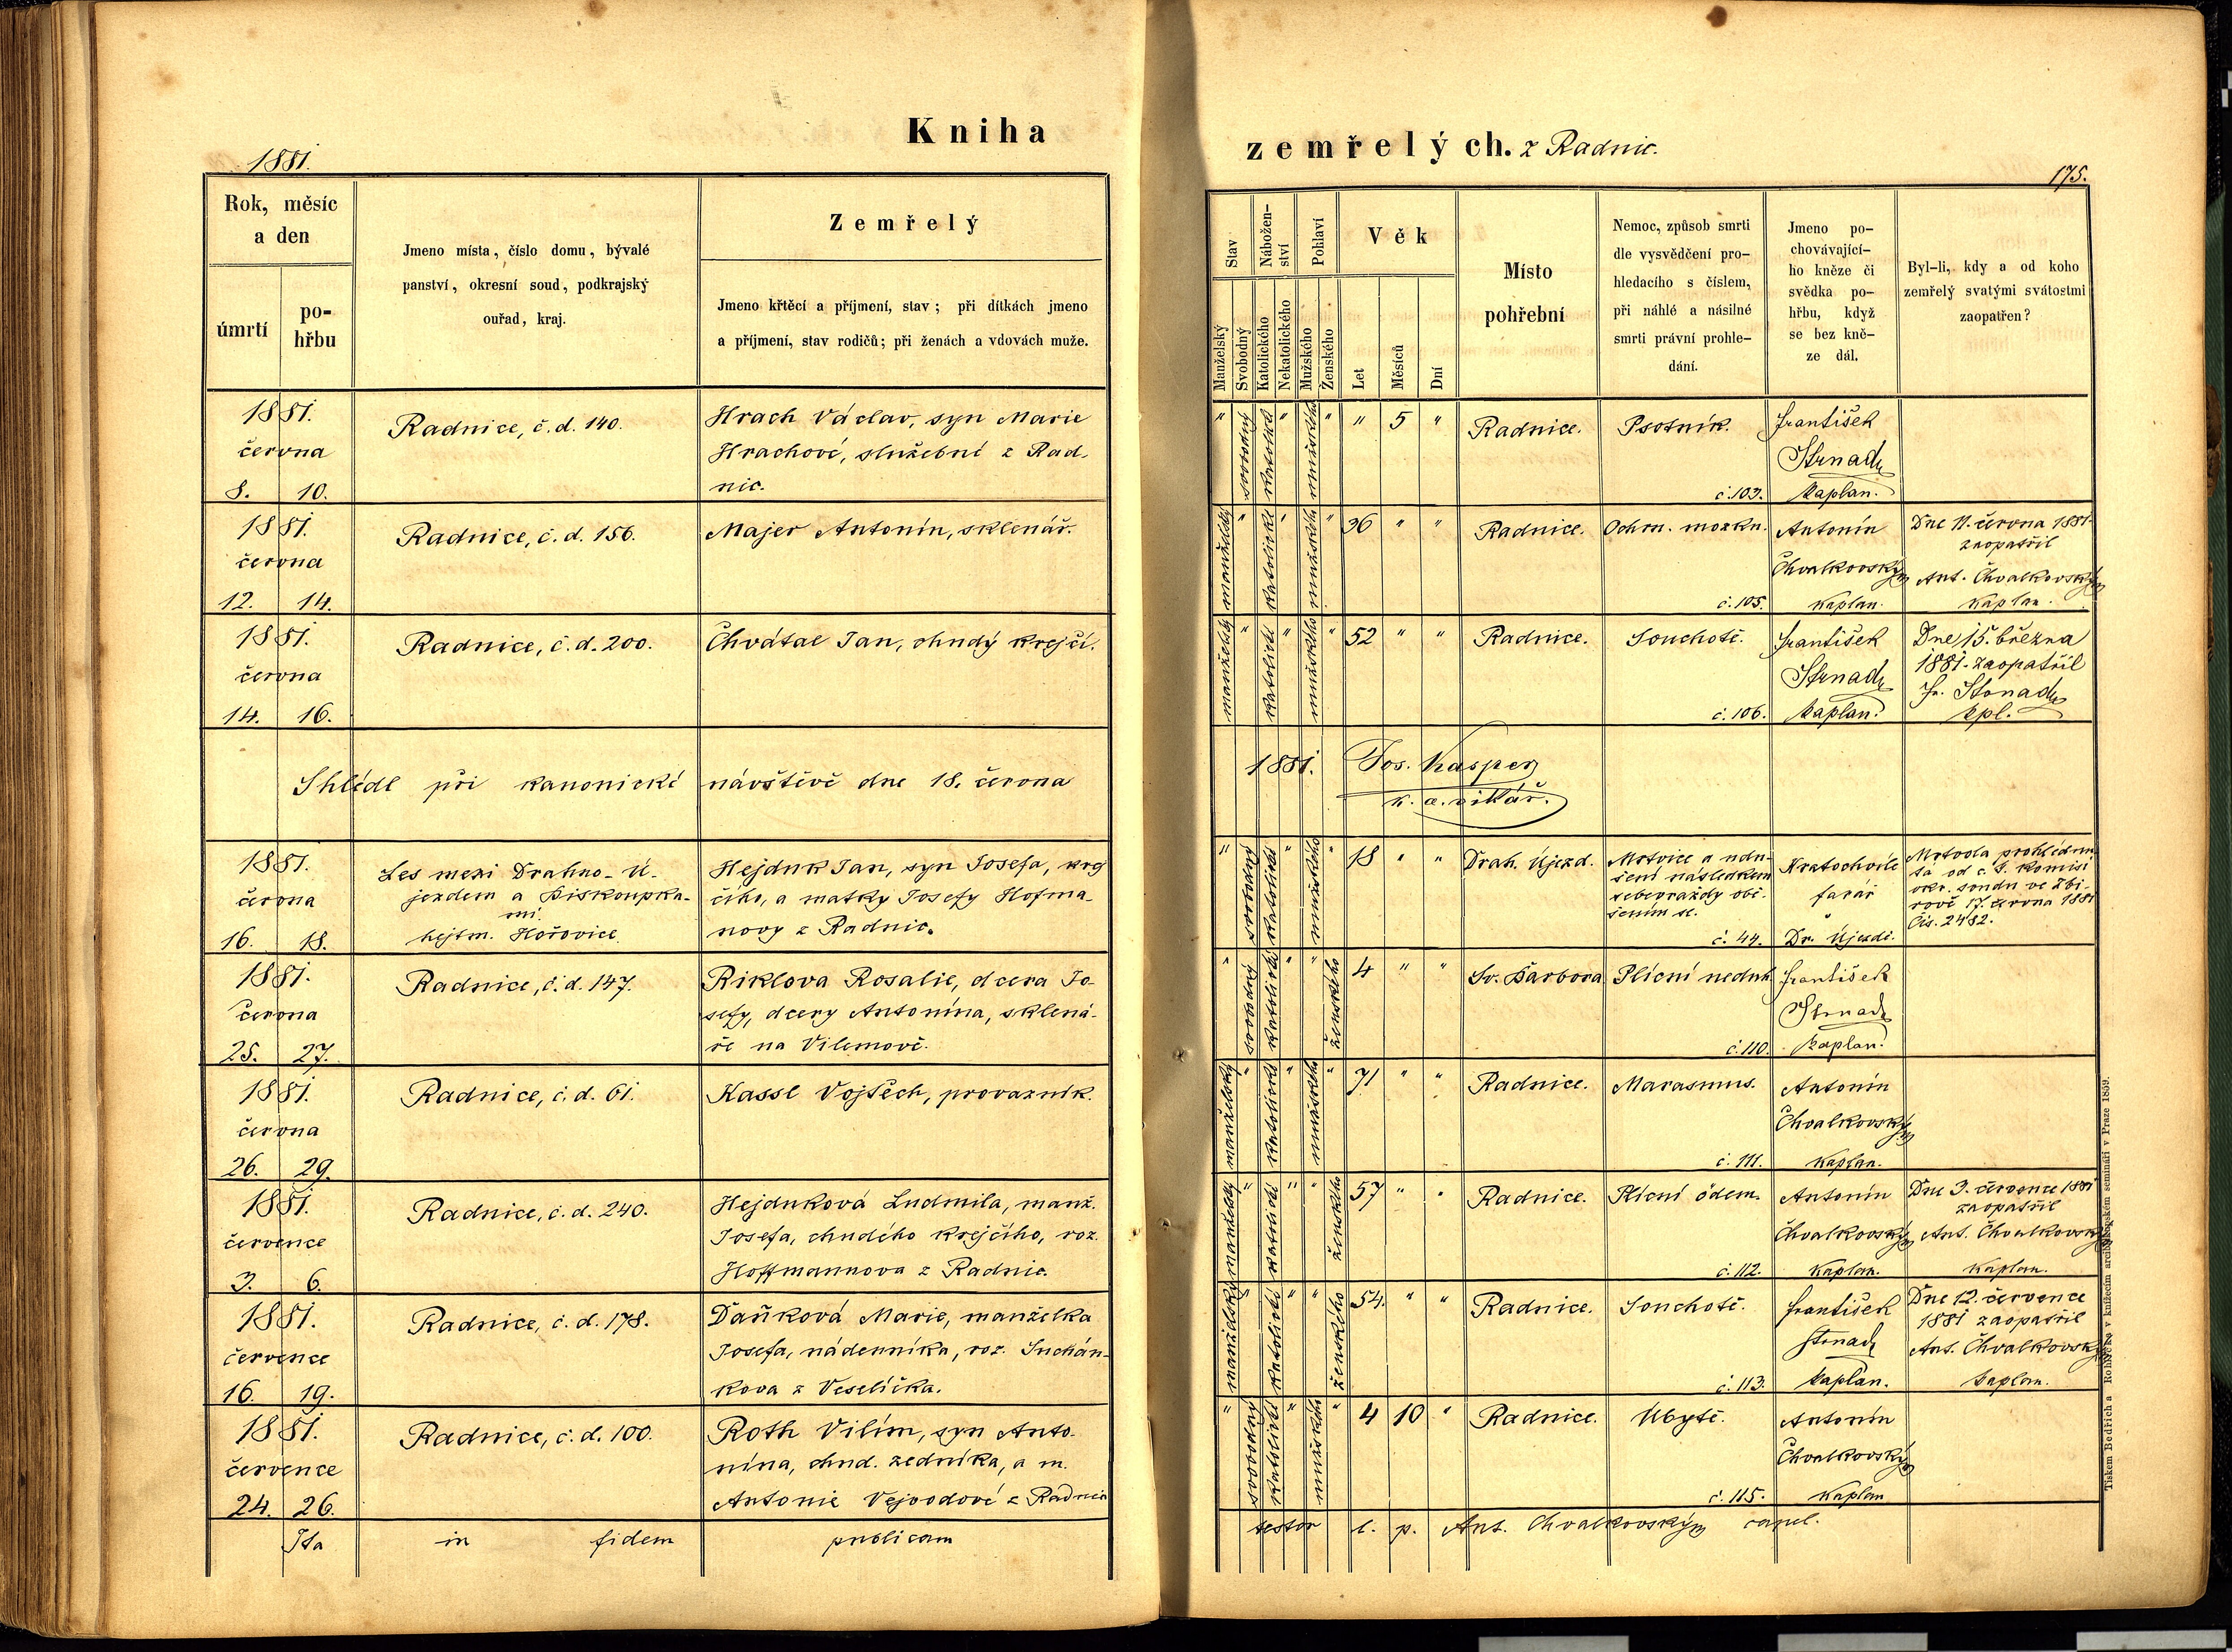 Kniha
zemřelých. z Radnic.
1881.
175.
Rok, měsíc
a den
úmrtí
po-
hřbu
Jmeno místa, číslo domu, bývalé
panství, okresní soud, podkrajský
ouřad, kraj.
Zemřelý
Jmeno křtěcí a příjmení, stav; při dítkách jmeno
a příjmení, stav rodičů; při ženách a vdovách muže.
Stav
Manželský
Svobodný
Nábožen-
ství
Katolického
Nekatolického
Pohlaví
Mužského
Ženského
Věk
Let
Měsíců
Dní
Místo
pohřební
Nemoc, způsob smrti
dle vysvědčení pro-
hledacího s číslem,
při náhlé a násilné
smrti právní prohle-
dání.
Jmeno po-
chovávající-
ho kněze či
svědka po-
hřbu, když
se bez kně-
ze dál.
Byl-li, kdy a od koho
zemřelý svatými svátostmi
zaopatřen?
1881.
června
8. 10.
Radnice, č. d. 140.
Hrach Václav, syn Marie
Hrachové, služebné z Rad-
nic.
" svobodný katolické " mužského " " 5 "
Radnice.
Psotník.
č. 103.
František
Strnad
kaplan.
1881.
června
12. 14.
Radnice, č. d. 156.
Majer Antonín, sklenář.
manželský " katolické " mužského " 36 " "
Radnice.
Ochrn. mozku.
č. 105.
Antonín
Chvalkovský
kaplan.
Dne 11. června 1881
zaopatřil
Ant. Chvalkovský
kaplan.
1881.
června
14. 16.
Radnice, č. d. 200.
Chvátal Jan, chudý krejčí.
manželský " katolické " mužského " 52 " "
Radnice.
Souchotě.
č. 106.
František
Strnad
kaplan.
Dne 15. března
1881. zaopatřil
Fr. Strnad
kpl.
Shlédl při kanonické návštěvě dne 18. června
1881. Jos. Kasper
k. a. vikář.
1881.
června
16. 18.
Les mezi Drahno-Ú-
jezdem a Biskoupka-
mi.
hejtm. Hořovice
Hejduk Jan, syn Josefa, krej
čího, a matky Josefy Hofma-
novy z Radnic.
" svobodný katolické " mužského " 18 " "
Drah. Újezd.
Mrtvice a udu-
šení následkem
sebevraždy obě-
šením se.
č. 44.
Kratochvíle
farář
Dr. Újezdě.
Mrtvola prohlédnu-
ta od c. k. komisí
okr. soudu ve Zbi-
rově 17. června 1881
Čís. 2482.
1881.
června
25. 27.
Radnice, č. d. 147.
Riklova Rosalie, dcera Jo-
sefy, dcery Antonína, sklená-
ře na Vilemově.
" svobodný katolické " " ženského 4 " "
Sv. Barbora
Plícní neduh.
č. 110.
František
Strnad
kaplan.
1881.
června
26. 29.
Radnice, č. d. 61.
Kassl Vojtěch, provazník.
manželský " katolické " mužského " 71 " "
Radnice.
Marasmus.
č. 111.
Antonín
Chvalkovský
kaplan.
1881.
července
3. 6.
Radnice, č. d. 240.
Hejduková Ludmila, manž.
Josefa, chudého krejčího, roz.
Hoffmannova z Radnic.
manželský " katolické " " ženského 57 " "
Radnice.
Plícní ödem.
č. 112.
Antonín
Chvalkovský
kaplan.
Dne 3. července 1881
zaopatřil
Ant. Chvalkovský
kaplan.
1881.
července
16. 19.
Radnice, č. d. 178.
Daňková Marie, manželka
Josefa, nádenníka, roz. Suchán-
kova z Veselíčka.
manželský " katolické " " ženského 54. " "
Radnice.
Souchotě.
č. 113.
František
Strnad
kaplan.
Dne 12. července
1881 zaopatřil
Ant. Chvalkovský
kaplan.
1881.
července
24. 26.
Radnice, č. d. 100.
Roth Vilím, syn Anto-
nína, chud. zedníka, a m.
Antonie Vejvodové z Radnic
" svobodný katolické " mužského " 4 10 "
Radnice.
Úbytě.
č. 115.
Antonín
Chvalkovský
kaplan
Ita in fidem publicam
testor l. p. Ant. Chvalkovský capel.
Tiskem Bedřicha Rohlíčka v knížecím arcibiskupském semináři v Praze 1859.